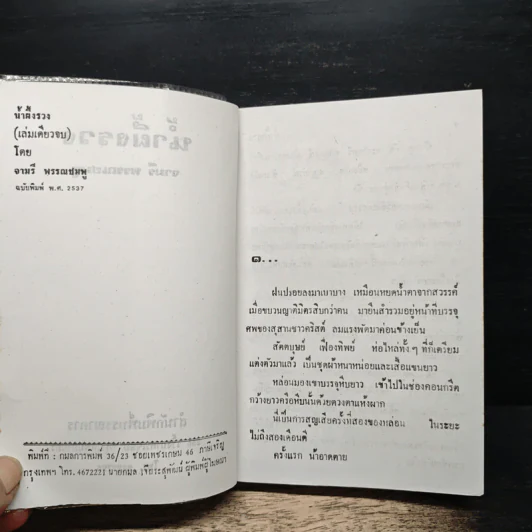 น้ำผึ้งรวง
(เล่มเดียวจบ)
โดย
จามรี พรรณชมพู
ฉบับพิมพ์ พ.ศ. 2537
พิมพ์ที่ : กมลการพิมพ์ 36/23 ซอยเพชรเกษม 46 ภาษีเจริญ
กรุงเทพฯ โทร. 4672221 นายกมล ผู้พิมพ์ผู้โฆษณา
๑...
ฝนปรอยลงมาเบาบาง เหมือนหยดน้ำตาจากสวรรค์
เมื่อขบวนญาติมิตรสิบกว่าคน มายืนสำรวมอยู่หน้าที่บรรจุ
ศพของสุสานชาวคริสต์ ลมแรงพัดมาค่อนข้างเย็น
สัตตบุษย์ เฟื่องทิพย์ ห่อไหล่ทั้งๆ ที่ก็เตรียม
แต่งตัวมาแล้ว เป็นชุดผ้าหนาหน่อยและเสื้อแขนยาว
หล่อนมองเขาบรรจุหีบยาว เข้าไปในช่องคอนกรีต
กว้างยาวครือหีบนั้นด้วยดวงตาแห้งผาก
นี่เป็นการสูญเสียครั้งที่สองของหล่อน ในระยะ
ไม่ถึงสองเดือนดี
ครั้งแรก น้าอาดตาย